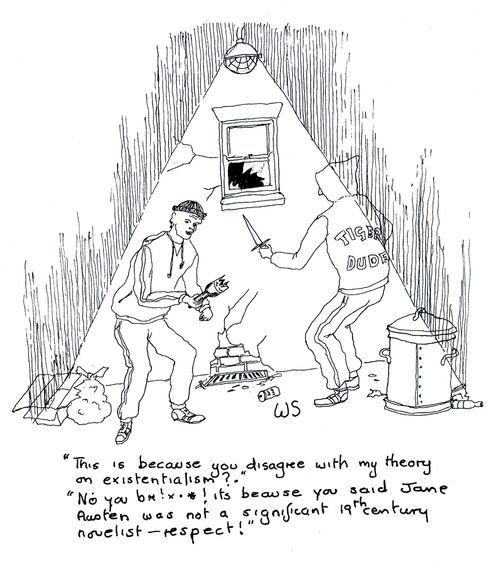 TIGER
DUDE
WS
"This is because you disagree with my theory
on existentialism?."
"No you b*!*·*! its beause you said Jane
Austen was not a significant 19th century
novelist – respect!"